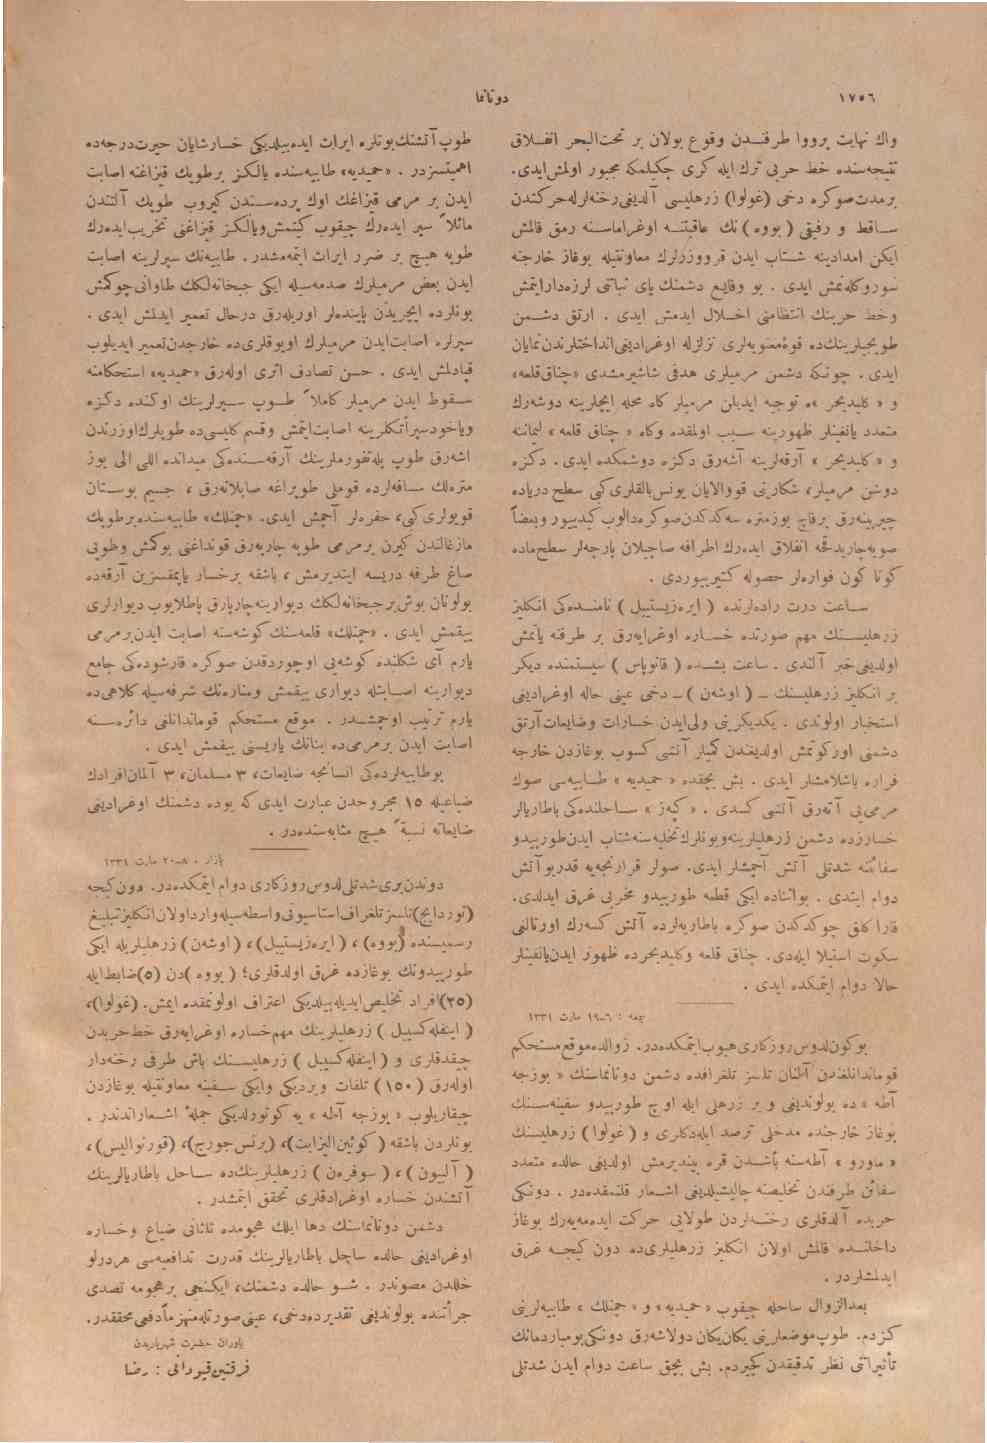 ١٧٥٦
دوناﻧﻤﺎ
واك نهایت برووا طرفندن وقوع بولان بر تحت‌البحر انفلاق
نتیجه‌سنده خط حربی ترك ایله کری چکیلمکه مجبور اولمش‌ایدی.
برمدت‌صوکره دخی (غولوا) زرهلیسی آلدیغی‌رخنه‌لرله‌حرکتدن
ساقط و رفیقی (بووه) نك عاقبتنه اوغراماسنه رمق قالمش
ایکن امدادینه شتاب ایدن قرووزرلرك معاونتیله بوغاز خارجنه
سوروکله‌نمش ایدی . بو وقایع دشمنك پای ثباتنی لرزه‌دارایتمش
وخط حربنك انتظامنی اخلال ایدمش ایدی . ارتق دشمن
طوبجیلرینك‌ده قوۀمعنویه‌لری تزلزله اوغرادیغی‌انداختلرندن‌نمایان
ایدی . چونکه دشمن مرمیلری هدفی شاشیرمشدی «چناق‌قلعه»
و « کلیدبحر »ه توجیه ایدیلن مرمیلر کاه محله ایچلرینه دوشه‌رك
متعدد یانغینلر ظهورینه سبب اولمقده وکاه « چناق قلعه » لیماننه
و « کلیدبحر » آرقه‌لرینه آشه‌رق دکزه دوشمکده ایدی . دکزه
دوشن مرمیلر، شکارینی قووالایان یونس‌بالقلری کبی سطح دریاده
چیرپینه‌رق برقاچ یوزمتره سه‌کدکدن‌صوکره‌دالوب کیدییور وبعضاً
صویه‌چارپدقجه انفلاق ایده‌رك اطرافه صاچیلان پارچه‌لر سطح‌ماده
کونا کون فواره‌لر حصوله کتیرییوردی .
ساعت درت راده‌لرنده ( ایره‌زیستیبل ) نامنده‌کی انکلیز
زرهلیسنك مهم صورتده خساره اوغرایه‌رق بر طرفنه یاتمش
اولدیغی‌خبر آلندی . ساعت بشده ( قانوپاس ) سیستمنده دیکر
بر انکلیز زرهلیسنك – ( اوشه‌ن ) – دخی عینی حاله اوغرادیغی
استخبار اولوندی . یکدیکرینی ولی‌ایدن خسارات وضایعات‌آرتق
دشمنی اورکوتمش اولدیغندن کمیلر آتشی کسوب بوغازدن خارجه
فراره باشلامشلر ایدی . بش بچقده « حمیدیه » طابیه‌سی صوك
مرمی‌یی آته‌رق آتشی کسدی . « کپه‌ز » ساحلنده‌کی باطاریالر
خسارزده دشمن زرهلیلرینه‌وبونلرك‌تخلیه‌سنه‌شتاب ایدن‌طورپیدو
سفائنه شدتلی آتش آچمشلر ایدی. صولر قرارنجه‌یه قدربوآتش
دوام ایتدی . بواثناده ایکی قطعه طورپیدو مخربی غرق ایدلدی.
قاراکلق چوکدکدن صوکره باطاریه‌لرده آتش کسه‌رك اورتالغی
سکوت استیلا ایله‌دی. چناق قلعه وکلیدبحرده ظهور ایدن‌یانغینلر
حالا دوام ایتمکده ایدی .
جمعه : ٦-١٩ مارت ١٣٣١
بوکون‌لدوس‌روزکاری‌هبوب‌ایتمکده‌در. زوالده‌موقع‌مستحکم
قوماندانلغندن آلنان تلسز تلغرافده دشمن دونانماسنك « بوزجه
آطه » ده بولوندیغی و بر زرهلی ایله اوچ طورپیدو سفینه‌سنك
بوغاز خارجنده مدخلی ترصد ایله‌دکلری و (غولوا) زرهلیسنك
« ماورو » آطه‌سنه باشدن قره بیندیرمش اولدیغی حالده متعدد
سفائن طرفندن تخلیصنه چالیشیلدیغی اشعار قلنمقده‌در . دونکی
حربده آلدقلری رخنه‌لردن طولایی حرکت ایده‌مه‌یه‌رك بوغاز
داخلنده قالمش اولان انکلیز زرهلیلری‌ده دون کیجه غرق
ایدلمشلردر .
بعدالزوال ساحله چیقوب «حمیدیه» و « چمنلك » طابیه‌لرینی
کزدم. طوپ‌موضعلرینی یکان‌یکان‌دولاشه‌رق دونکی‌بومباردمانك
تأثیراتنی نظر تدقیقدن کچیردم. بش بچق ساعت دوام ایدن شدتلی
طوپ‌آتشنك‌بونلره ایراث ایده‌بیلدیکی خسارشایان حیرت‌درجه‌ده
اهمیتسزدر . «حمیدیه» طابیه‌سنده یالکز برطوپك قیزاغنه اصابت
ایدن بر مرمی قیزاغك اوك پرده‌سندن کیروب طوپك آلتندن
مائلاً سیر ایده‌رك چیقوب کیتمش‌ویالکز قیزاغنی تخریب‌ایده‌رك
طوپه هیچ بر ضرر ایراث ایتمه‌مشدر . طابیه‌نك سیرلرینه اصابت
ایدن بعض مرمیلرك صدمه‌سیله ایکی جبخانه‌لکك طاوانی‌چوکمش
بونلرده ایچریدن پاینده‌لر اوریله‌رق درحال تعمیر ایدلمش ایدی .
سیرلره اصابت‌ایدن مرمیلرك اویوقلری‌ده خارجدن‌تعمیر ایدیلوب
قپادلمش ایدی . حسن تصادف اثری اوله‌رق «حمیدیه» استحکامنه
سقوط ایدن مرمیلر کاملاً طوپ سیرلرینك اوکنده دکزه
ویاخودسیرأتکلرینه اصابت‌ایتمش وقسم کلیسی‌ده طوپلرك‌اوزرندن
اشه‌رق طوپ پله‌تفورملرینك آرقه‌سنده‌کی میدانده اللی الی یوز
متره‌لك مسافه‌لرده قوملی طوپراغه صاپلانه‌رق ، جسیم بوستان
قویولری‌کبی، حفره‌لر آچمش ایدی. «چمنلك» طابیه‌سنده‌برطوپك
مازغالندن کیرن برمرمی طوپه چارپه‌رق قونداغنی بوکمش وطوپی
صاغ طرفه دریسه ایندیرمش ، باشقه برخسار یاپمقسزین آرقه‌ده
بولونان بوش‌برجبخانه‌لکك دیوارینه‌چارپارق پاطلایوب دیوارلری
ییقمش ایدی . «چمنلك» قلعه‌سنك کوشه‌سنه اصابت ایدن‌برمرمی
یارم آی شکلنده کوشه‌یی اوچوردقدن صوکره قارشوده‌کی جامع
دیوارینه اصابتله دیواری ییقمش ومناره‌نك شرفه‌سیله کلاهی‌ده
یارم ترتیب اوچمشدر . موقع مستحکم قوماندانلغی دائره‌سنه
اصابت ایدن برمرمی‌ده بنانك یاریسنی ییقمش ایدی .
بوطابیه‌لرده‌کی انسانجه ضایعات، ٣ مسلمان، ٣ آلمان‌افرادك
ضیاعیله ١٥ مجروحدن عبارت ایدی‌که بوده دشمنك اوغرادیغی
ضایعاته نسبةً هیچ مثابه‌سنده‌در .
بازار ٨-٢٠ مارت ١٣٣١
دوندن‌بری‌شدتلی‌لدوس‌روزکاری دوام ایتمکده‌در. دون‌کیجه
(نوردایچ)تلسزتلغراف‌استاسیونی‌واسطه‌سیله‌وارداولان‌انکلیزتبلیغ
رسمیسنده (بووه) ، (ایره‌زیستیبل)، (اوشه‌ن) زرهلیلریله ایکی
طورپیدونك بوغازده غرق اولدقلری؛ ( بووه )دن (٥)ضابط‌ایله
(٢٥)افراد تخلیص‌ایدیله‌بیلدیکی اعتراف اولونمقده ایمش. (غولوا)،
( اینفله‌کسیبل ) زرهلیلرینك مهم‌خساره اوغرایه‌رق خط‌حربدن
چیقدقلری و ( اینفله‌کسیبل ) زرهلیسنك باش طرفی رخنه‌دار
اوله‌رق (١٥٠) تلفات ویردیکی وایکی سفینه معاونتیله بوغازدن
چیقاریلوب « بوزجه آطه » یه کوتورلدیکی جمله‌ٔ اشعاراتدندر .
بونلردن باشقه (کوئین‌الیزابت)، (پرنس‌جورج)، (قورنوالیس)،
(آلبیون) ، ( سوفره‌ن ) زرهلیلرینك‌ده ساحل باطاریالرینك
آتشندن خساره اوغرادقلری تحقق ایتمشدر .
دشمن دونانماسنك دها ایلك هجومده ثلثانی ضیاع وخساره
اوغرادیغی حالده ساحل باطاریالرینك قدرت تدافعیه‌سی هردرلو
خللدن مصوندر . شو حالده دشمنك، ایکنجی برهجومه تصدی
جرأتنده بولوندیغی تقدیرده‌دخی، عینی‌صورتله‌منهزماً‌دفعی‌محققدر.
یاوران حضرت شهریاریدن
فرقتین‌قپودانی : رضا